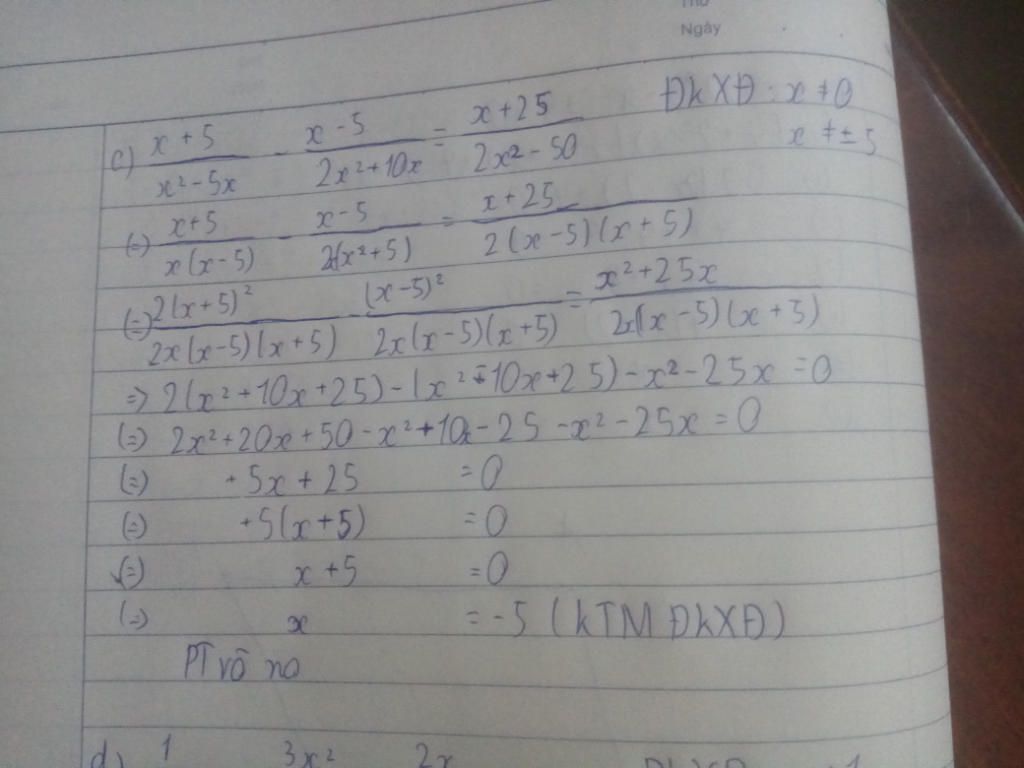 Thứ
Ngày
c) x + 5 / x² - 5x - x - 5 / 2x² + 10x = x + 25 / 2x² - 50 ĐkXĐ : x ≠ 0
x ≠ ± 5
(=) x+5 / x(x-5) - x-5 / 2(x²+5) = x+25 / 2(x-5)(x+5)
(=) 2(x+5)² / 2x(x-5)(x+5) - (x-5)² / 2x(x-5)(x+5) = x²+25x / 2x(x-5)(x+5)
=> 2(x²+10x+25) - (x²-10x+25) - x² - 25x = 0
(=) 2x²+20x+50 - x²+10x - 25 - x² - 25x = 0
(=) + 5x + 25 = 0
(=) +5(x+5) = 0
(=) x + 5 = 0
(=) x = -5 (kTM ĐkXĐ)
PT vô no
d) 1 3x² 2x